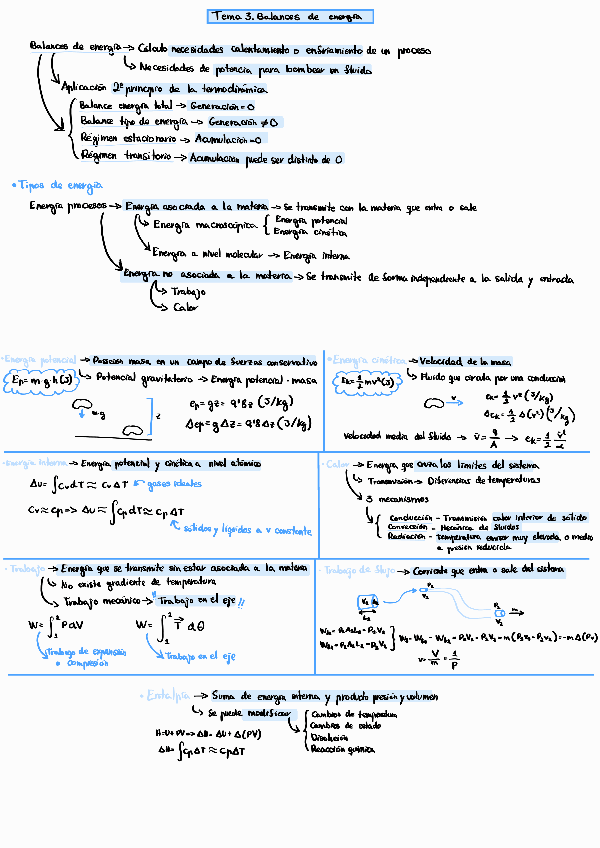 Tema 3. Balances de energía
Balances de energía → Cálculo necesidades calentamiento o enfriamiento de un proceso
↳ Necesidades de potencia para bombear un fluido
Aplicación 2º principio de la termodinámica
Balance energía total → Generación = 0
Balance tipo de energía → Generación ≠ 0
Régimen estacionario → Acumulación = 0
Régimen transitorio → Acumulación puede ser distinto de 0
• Tipos de energía
Energía procesos → Energía asociada a la materia → Se transmite con la materia que entra o sale
Energía macroscópica { Energía potencial
Energía cinética
Energía a nivel molecular → Energía interna
Energía no asociada a la materia → Se transmite de forma independiente a la salida y entrada
Trabajo
Calor
• Energía potencial → Posición masa en un campo de fuerzas conservativo
Ep = m·g·h (J)
↳ Potencial gravitatorio → Energía potencial · masa
m·g
z
ep = gz = 9'8z (J/kg)
Δep = gΔz = 9'8Δz (J/kg)
• Energía cinética → Velocidad de la masa
Ek = 1/2 mv² (J)
↳ Fluido que circula por una conducción
v
ek = 1/2 v² (J/kg)
Δek = 1/2 Δ(v²) (J/kg)
Velocidad media del fluido → v̄ = q/A → ek = 1/2 v̄²/α
• Energía interna → Energía potencial y cinética a nivel atómico
Δu = ∫cv dT ≈ cv ΔT ← gases ideales
Cv ≈ cp => Δu ≈ ∫cp dT ≈ cp ΔT
sólidos y líquidos a v constante
• Calor → Energía que cruza los límites del sistema
↳ Transmisión → Diferencias de temperaturas
↳ 3 mecanismos
Conducción - Transmisión calor interior de sólido
Convección - Mecánica de fluidos
Radiación - temperatura emisor muy elevada, o medio
a presión reducida
• Trabajo → Energía que se transmite sin estar asociada a la materia
↳ No existe gradiente de temperatura
↳ Trabajo mecánico → "Trabajo en el eje"!!
W = ∫₁² P dV W = ∫₁² T dθ
Trabajo de expansión
o compresión
Trabajo en el eje
• Trabajo de flujo → Corriente que entra o sale del sistema
P₁
V₁
P₂
V₂
m
v = V/m = 1/ρ
• Entalpía → Suma de energía interna y producto presión y volumen
↳ Se puede modificar
Cambios de temperatura
Cambios de estado
Disolución
Reacción química
H = U + PV => ΔH = ΔU + Δ(PV)
ΔH = ∫cp ΔT ≈ cp ΔT